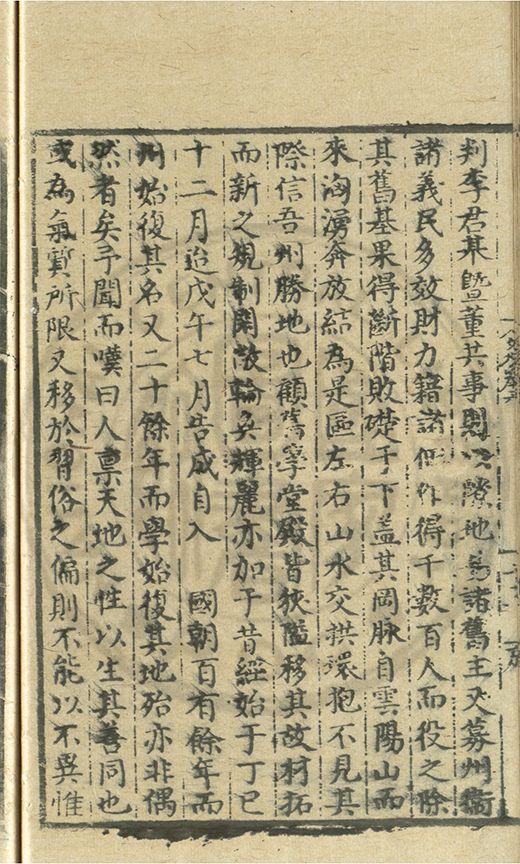 判李君某曁董其事以隙地易諸舊主又募州衛
諸義民多效財力籍諸作得千數百人而役之除
其舊基果得斷階敗礎于下盖其岡脉自雲陽山而
來洶湧奔放結為是區左右山水交拱環抱不見其
際信吾州勝地也顧舊學堂殿皆狹隘移其故材拓
而新之規制閎敞輪奐輝麗亦加于昔經始于丁巳
十二月迨戊午七月告成自入 國朝百有餘年而
州始復其名又二十餘年而學始復其地殆亦非偶
然者矣予聞而嘆曰人禀天地之性以生其善同也
或為氣質所限又移於習俗之偏則不能以不異惟